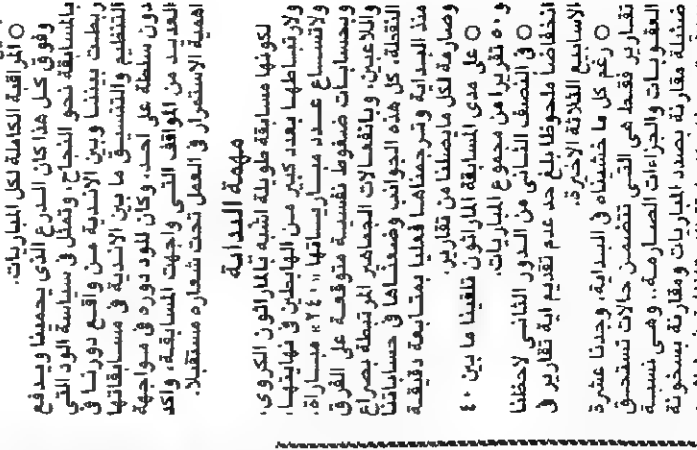 ○ المراقبة الكاملة لكل المباريات.
وفوق كل هذا كان الدرع الذي يحمينا ويدفع
بالمسابقة نحو النجاح، وتمثل في سياسة الود التي
ربطت بيننا وبين الأندية من واقع دورنا في
التنظيم والتنسيق ما بين الأندية في مسابقاتها
دون سلطة على أحد، وكان للود دوره في مواجهة
العديد من المواقف التي واجهت المسابقة، وأكد
أهمية الاستمرار في العمل تحت شعاره مستقبلا.
مهمة البداية
لكونها مسابقة طويلة أشبه بالماراثون الكروي،
ولارتباطها بعدد كبير من الهابطين في نهايتها،
ولاتساع عدد مبارياتها «٢٤٠» مباراة،
وبحسابات ضغوط نفسية متوقعة على الفرق
واللاعبين، وبانفعالات الجماهير المرتبطة بصراع
النقطة، كل هذه الجوانب وضعناها في حساباتنا
منذ البداية وترجمناها فعليا بمتابعة دقيقة
وصارمة لكل ما يصلنا من تقارير.
○ على مدى المسابقة الماراثون تلقينا ما بين ٤٠
و ٥٠ تقريرا من مجموع المباريات.
○ في النصف الثاني من الدور الثاني لاحظنا
انخفاضا ملحوظا بلغ حد عدم تقديم أية تقارير في
الأسابيع الثلاثة الأخيرة.
○ رغم كل ما خشيناه في البداية، وجدنا عشرة
تقارير فقط هي التي تتضمن حالات تستحق
العقوبات والجزاءات الصارمة.. وهي نسبة
ضئيلة مقارنة بعدد المباريات ومقارنة بسخونة